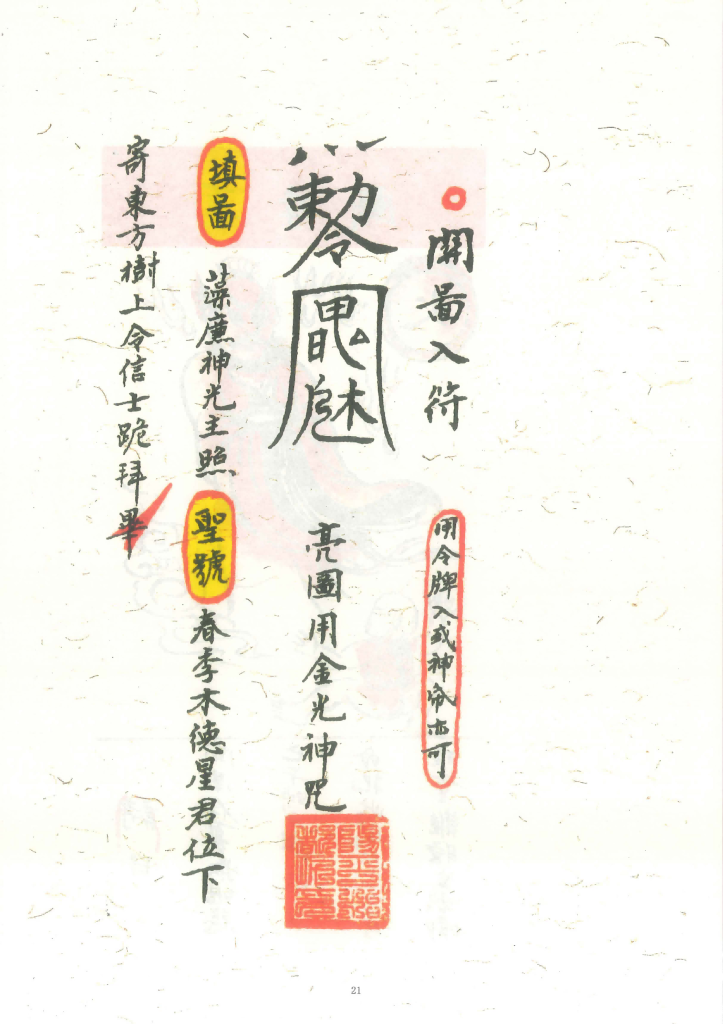 開啚入符
用令牌入或神䇿亦可
敕令
亮圖用金光神咒
填啚
藻廉神光主照
聖號
春季木德星君位下
寄東方樹上令信士跪拜畢
21